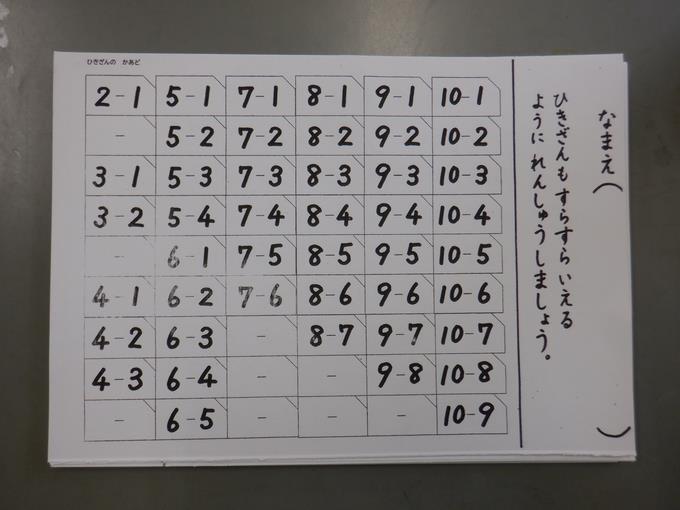 なまえ（　）
ひきざんもすらすらいえる
ようにれんしゅうしましょう。
ひきざんの かあど
2-1 5-1 7-1 8-1 9-1 10-1
- 5-2 7-2 8-2 9-2 10-2
3-1 5-3 7-3 8-3 9-3 10-3
3-2 5-4 7-4 8-4 9-4 10-4
- 6-1 7-5 8-5 9-5 10-5
4-1 6-2 7-6 8-6 9-6 10-6
4-2 6-3 - 8-7 9-7 10-7
4-3 6-4 - - 9-8 10-8
- 6-5 - - - 10-9